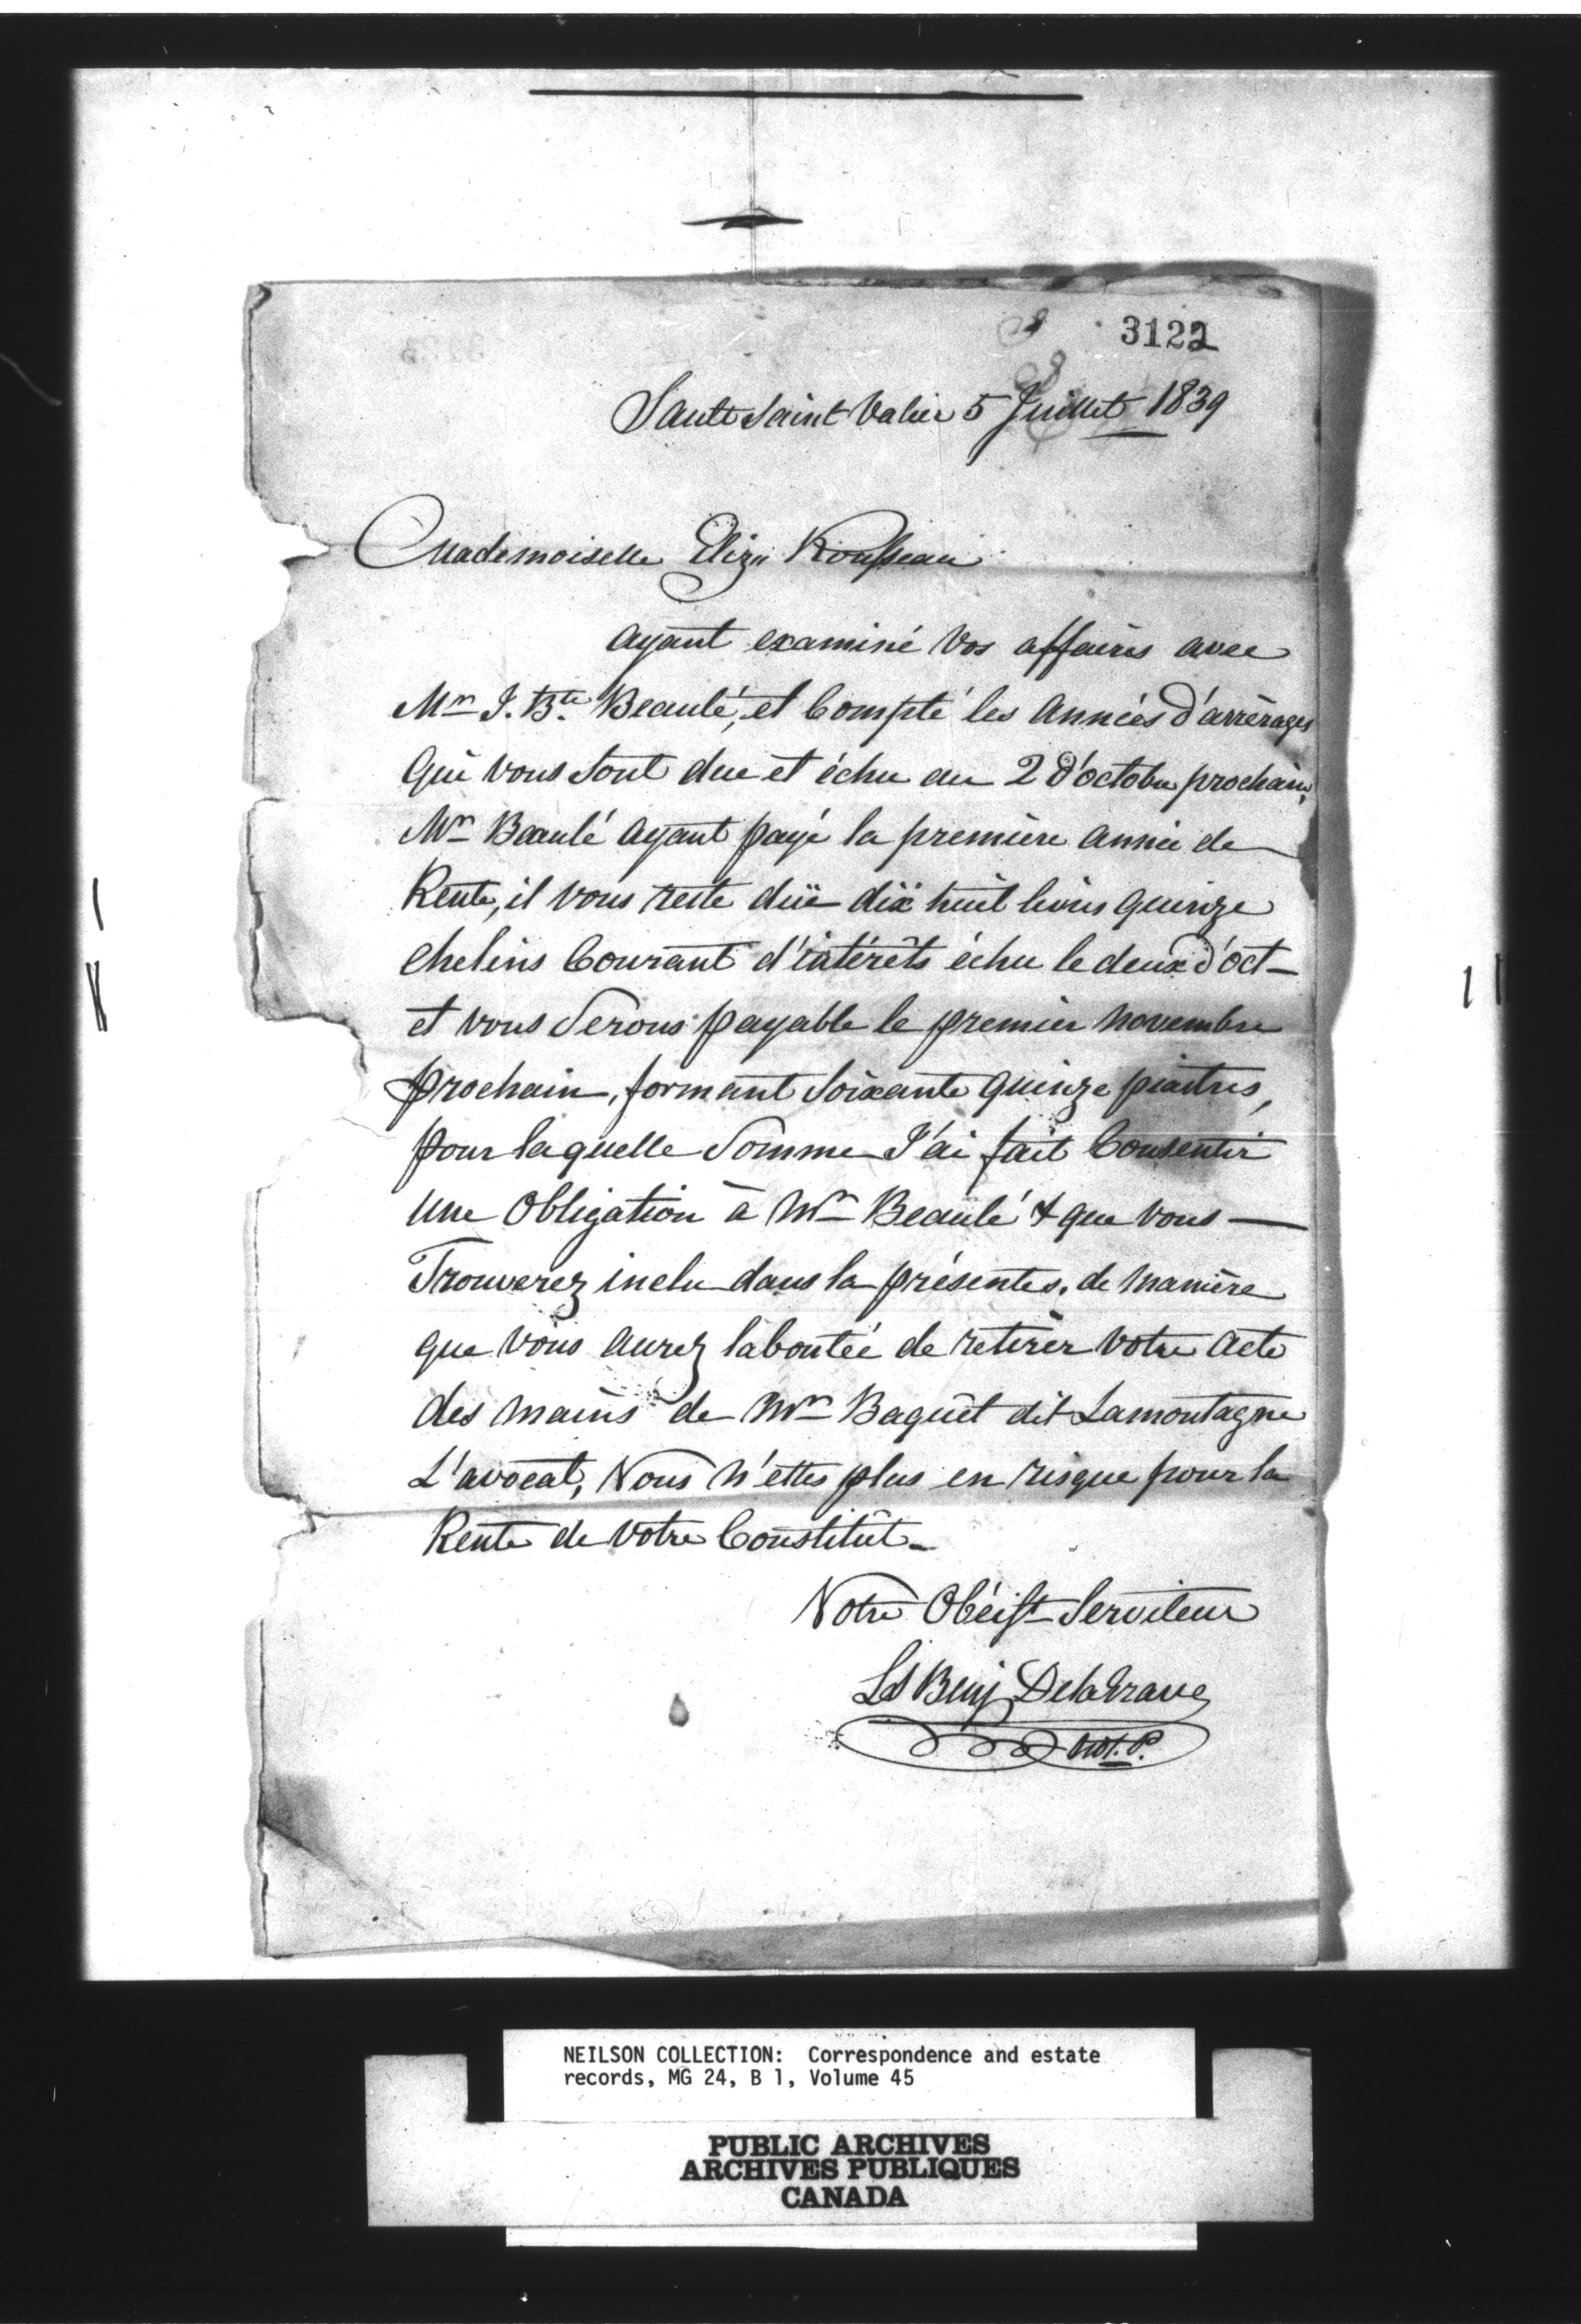 3122
Sault Saint Valier 5 Juillet 1839
Mademoiselle Eliz. Rousseau
ayant examiné vos affaires avec
Mr J. Bte Beaulé, et Compté les années d'arrèrages
qui vous sont due et échu au 2 d'octobre prochain,
Mr Beaulé ayant payé la première année de
Rente, il vous reste düe dix huit livres quinze
chelins Courant d'intérêts échu le deux d'oct-
et vous Serons payable le premier novembre
prochain, formant Soixante quinze piastres,
pour laquelle Somme J'ai fait Consentir
une Obligation à Mr Beaulé & que vous —
Trouverez inclu dans la présentes. de manière
que vous aurez la bontée de retirer votre acte
des mains de Mr Baquet dit Lamontagne
L'avocat, Vous n'ettes plus en risque pour la
Rente de votre Constitût.
Votre Obéist Serviteur
Ls Benj Delagrave
Not. P.
NEILSON COLLECTION: Correspondence and estate
records, MG 24, B 1, Volume 45
PUBLIC ARCHIVES
ARCHIVES PUBLIQUES
CANADA